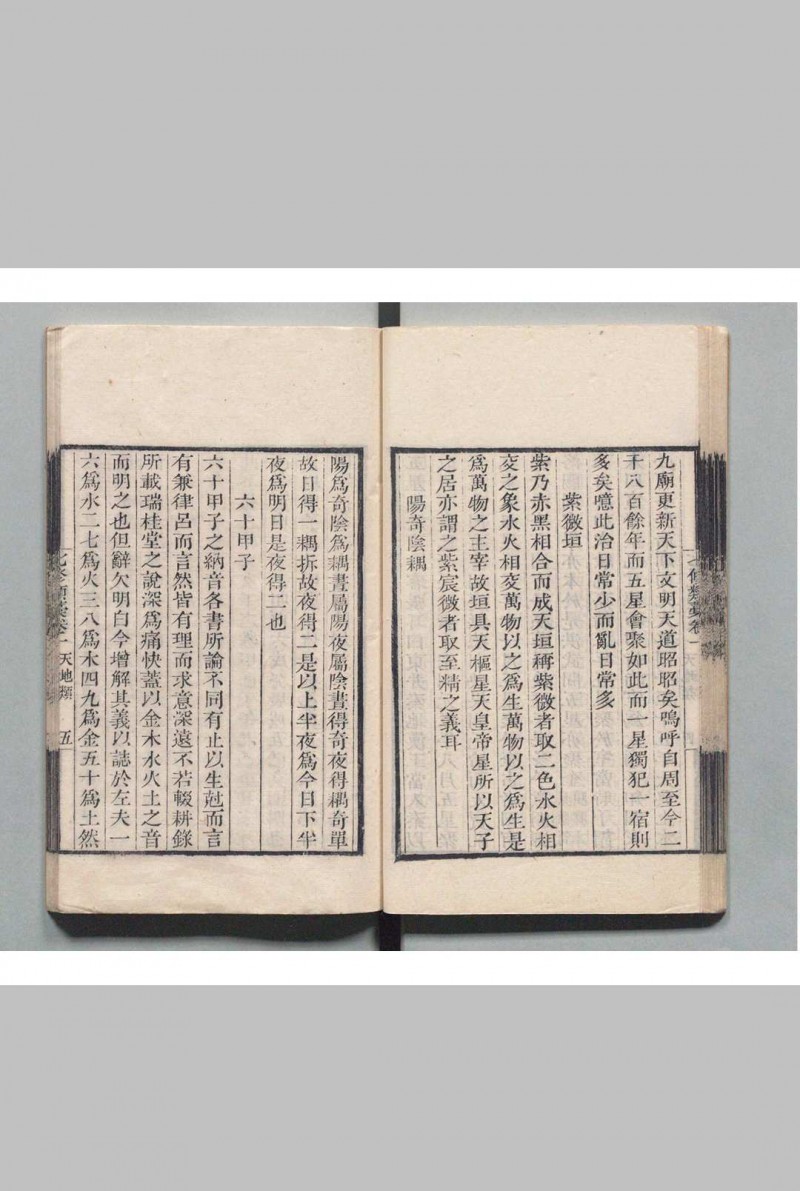 九廟更新天下文明天道昭昭矣嗚呼自周至今二
千八百餘年而五星會聚如此而一星獨犯一宿則
多矣噫此治日常少而亂日常多
紫微垣
紫乃赤黑相合而成天垣稱紫微者取二色水火相
交之象水火相交萬物以之爲生萬物以之爲生是
爲萬物之主宰故垣具天樞星天皇帝星所以天子
之居亦謂之紫宸微者取至精之義耳
陽奇陰耦
陽爲奇陰爲耦晝屬陽夜屬陰晝得奇夜得耦奇單
故日得一耦拆故夜得二是以上半夜爲今日下半
夜爲明日是夜得二也
六十甲子
六十甲子之納音各書所論不同有止以生尅而言
有兼律呂而言然皆有理而求意深遠不若輟耕錄
所載瑞桂堂之說深爲痛快蓋以金木水火土之音
而明之也但辭欠明白今增解其義以誌於左夫一
六爲水二七爲火三八爲木四九爲金五十爲土然
卷一 天地類 五